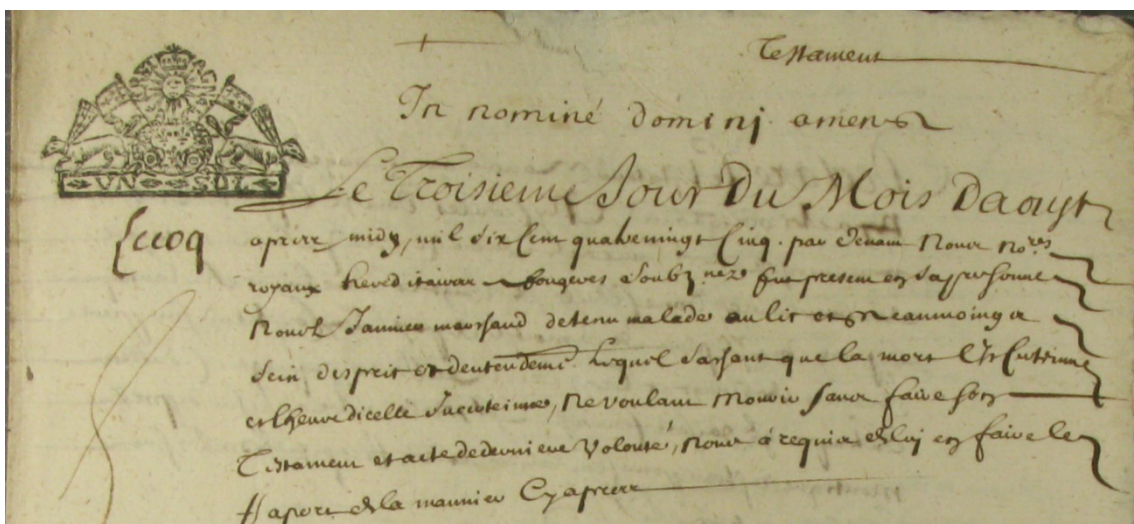 Testament
In nominé dominj amen
UN SOL
Le Troisieme Jour Du Mois Daoust
Lecoq
apres midy, mil six cent quatrevingt cinq par devant nous no.res
royaux hereditaires a fougeres soub.nez fut present en sa personne
Jannier marchand detenu malade au lit et neanmoings
sein desprit et dentendemt. lequel sachant que la mort est certainne
et lheure dicelle Incerteinne, ne voulant mourir sans faire son
Testament et acte de derniere volonté, nous á requis de luy en faire le
raport de la manniere cy apres